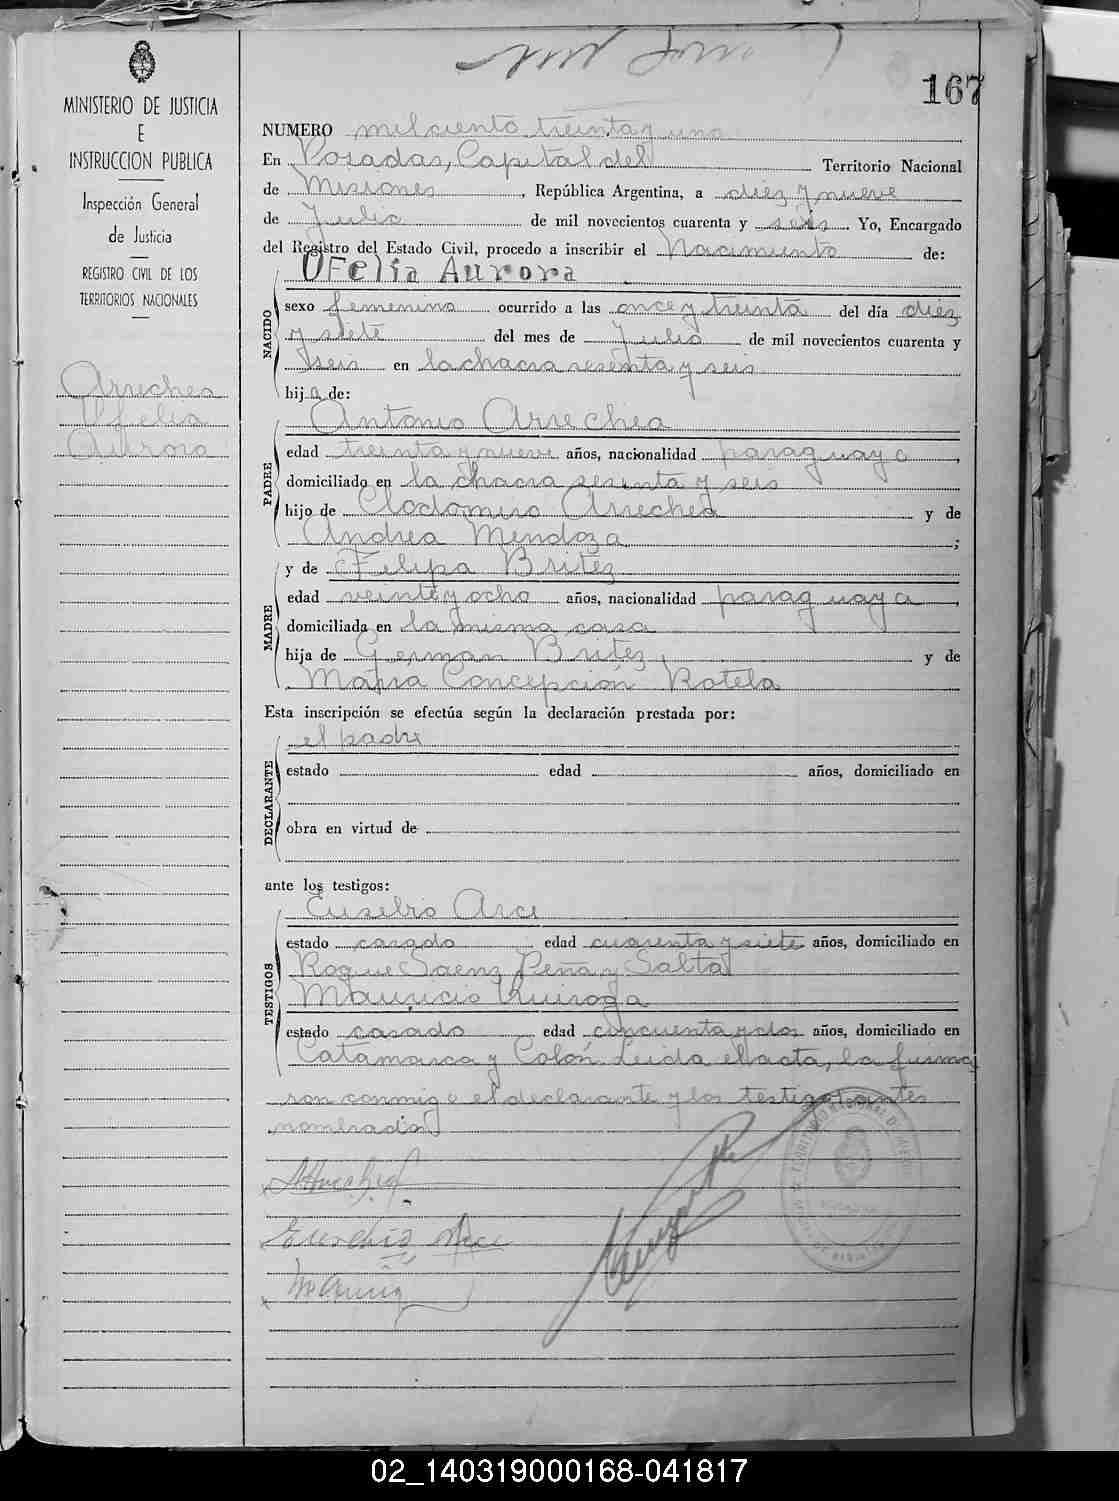 167
MINISTERIO DE JUSTICIA
E
INSTRUCCION PUBLICA
Inspección General
de Justicia
REGISTRO CIVIL DE LOS
TERRITORIOS NACIONALES
Arrechea
Ofelia
Aurora
NUMERO mil ciento treinta y uno
En Posadas, Capital del Territorio Nacional
de Misiones, República Argentina, a diez y nueve
de Julio de mil novecientos cuarenta y seis. Yo, Encargado
del Registro del Estado Civil, procedo a inscribir el Nacimiento de:
OFelia Aurora
NACIDO
sexo femenino ocurrido a las once y treinta del día diez
y siete del mes de Julio de mil novecientos cuarenta y
seis en la chacra sesenta y seis
hija de:
Antonio Arrechea
PADRE
edad treinta y nueve años, nacionalidad paraguayo,
domiciliado en la chacra sesenta y seis
hijo de Clodomiro Arrechea y de
Andrea Mendoza;
y de Felipa Britez
MADRE
edad veinte y ocho años, nacionalidad paraguaya,
domiciliada en la misma casa
hija de German Britez y de
María Concepción Rotela
Esta inscripción se efectúa según la declaración prestada por:
el padre
DECLARANTE
estado edad años, domiciliado en
obra en virtud de
ante los testigos:
Eusebio Arce
TESTIGOS
estado casado edad cuarenta y siete años, domiciliado en
Roque Saenz Peña y Salta
Mauricio Quiroga
estado casado edad cincuenta y dos años, domiciliado en
Catamarca y Colón Leida el acta, la firma
ron conmigo el declarante y los testigos antes
nombrados
AArrechea
Eusebio Arce
02_140319000168-041817